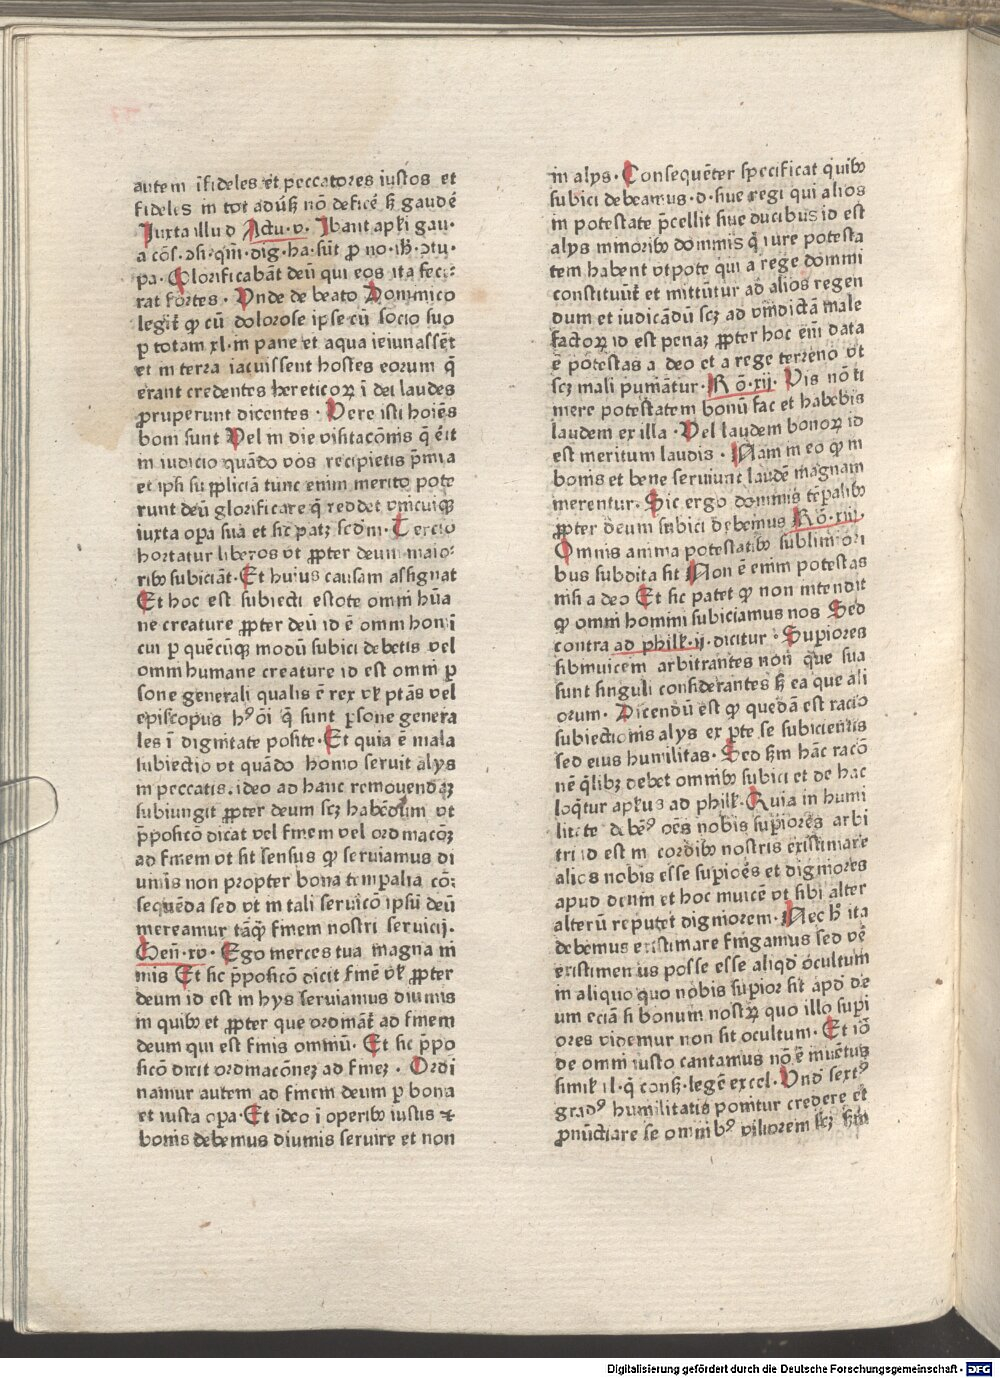 autem īfideles et peccatores iustos et
fideles in tot adūsꝫ nō deficē sꝫ gaudē
Iuxta illud Actu·v· Ibant apłi gau·
a cōs· ɔsi·qm̄·dig·ha·sūt ꝓ no·ih̄·ɔtu·
pa· Glorificabāt deū qui eos ita feci:
rat fortes · Vnde de beato Dominico
legit̄ ꝙ cū dolorose ipse cū socio suo
ꝑ totam xl· in pane et aqua ieiunassēt
et in terra iacuissent hostes eorum q̄
erant credentes hereticoꝝ ī dei laudes
ꝓruperunt dicentes · Vere isti hoiēs
boni sunt Vel in die visitacōnis q̄ erit
in iudicio quādo vos recipietis p̄mia
et ipsi suppliciā tunc enim merito pote
runt deū glorificare q̄ reddet vnicuiqꝫ
iuxta opa sua et sic patꝫ scdm· Tercio
hortatur liberos vt ꝓpter deum maio:
ribꝰ subiciāt· Et huius causam assignat
Et hoc est subiecti estote omni hūa
ne creature ꝓpter deū id ē omni homī
cui ꝑ quēcūqꝫ modū subici debetis vel
omni humane creature id est omni ꝑ
sone generali qualis ē rex vł ptās vel
episcopus hꝰ ōi q̄ sunt ꝑsone genera
les ī dignitate posite· Et quia ē mala
subiectio vt quādo homo seruit alys
in peccatis. ideo ad hanc remouendaꝫ
subiungit ꝓpter deum scꝫ habēdum vt
p̄posicō dicat vel finem vel ordinacōꝫ
ad finem vt sit sensus ꝙ seruiamus di
uinis non propter bona temꝑalia cō:
sequēda sed vt in tali seruicō ipsū deū
mereamur tāqꝫ finem nostri seruicij.
Gen̄·xv· Ego merces tua magna ni
mis Et sic p̄posicō dicit finē vł ꝓpter
deum id est in hys seruiamus diuinis
in quibꝰ et ꝓpter que ordināt̄ ad finem
deum qui est finis omniū. Et sic p̄po
sicō dicit ordinacōneꝫ ad fineꝫ · Ordi
namur autem ad finem deum ꝑ bona
et iusta opa· Et ideo ī operibꝰ iustis ⁊
bonis debemus diuinis seruire et non
in alys· Consequēter specificat quibꝰ
subici debeamus·d·siue regi qui alios
in potestate p̄cellit siue ducibus id est
alys minoribꝰ dominis q̄ iure potesta
tem habent vtpote qui a rege domini
constituūt̄ et mittūtur ad alios regen
dum et iudicādū scꝫ ad vindictā male
factoꝝ id est penaꝫ ꝓpter hoc eni data
ē potestas a deo et a rege terreno vt
scꝫ mali puniātur· Rō·xij· Vis nō ti
mere potestatem bonū fac et habebis
laudem ex illa · Vel laudem bonoꝝ id
est meritum laudis · Nam in eo ꝙ in
bonis et bene seruiunt laudē magnam
merentur· Sic ergo dominis tēꝑalibꝰ
ꝓpter deum subici debemus Rō·xiij·
Omnis anima potestatibꝰ sublimiori
bus subdita sit Non ē enim potestas
nisi a deo Et sic patet ꝙ non intendit
ꝙ omni homini subiciamus nos Sed
contra ad philł·ij·dicitur · Suꝑiores
sibinuicem arbitrantes non que sua
sunt singuli considerantes sꝫ ea que ali
orum· Dicendū est ꝙ quedā est racio
subiectionis alys ex pte se subicientis
sed eius humilitas· Sed scꝫm hāc racō
nē q̄libꝫ debet omnibꝰ subici et de hac
loq̄tur aplus ad philł· Quia in humi
litate debēꝰ oēs nobis suꝑiores arbi
tri id est in cordibꝰ nostris existimare
alios nobis esse suꝑioēs et digniores
apud deum et hoc inuicē vt sibi alter
alterū reputet digniorem· Nec h̄ ita
debemus existimare fingamus sed vē
existimemus posse esse aliqd ocultum
in aliquo quo nobis suꝑior sit apd de
um eciā si bonum nostꝝ quo illo suꝑi
ores videmur non sit ocultum· Et iō
de omni iusto cantamus nō ē inuētus
similł il·q̄ consꝫ·legē excel· Vnd̄ sextꝰ
gradꝰ humilitatis ponitur credere et
ꝓnūctiare se omnibꝰ viliorem scꝫ scꝫm
Digitalisierung gefördert durch die Deutsche Forschungsgemeinschaft · DFG